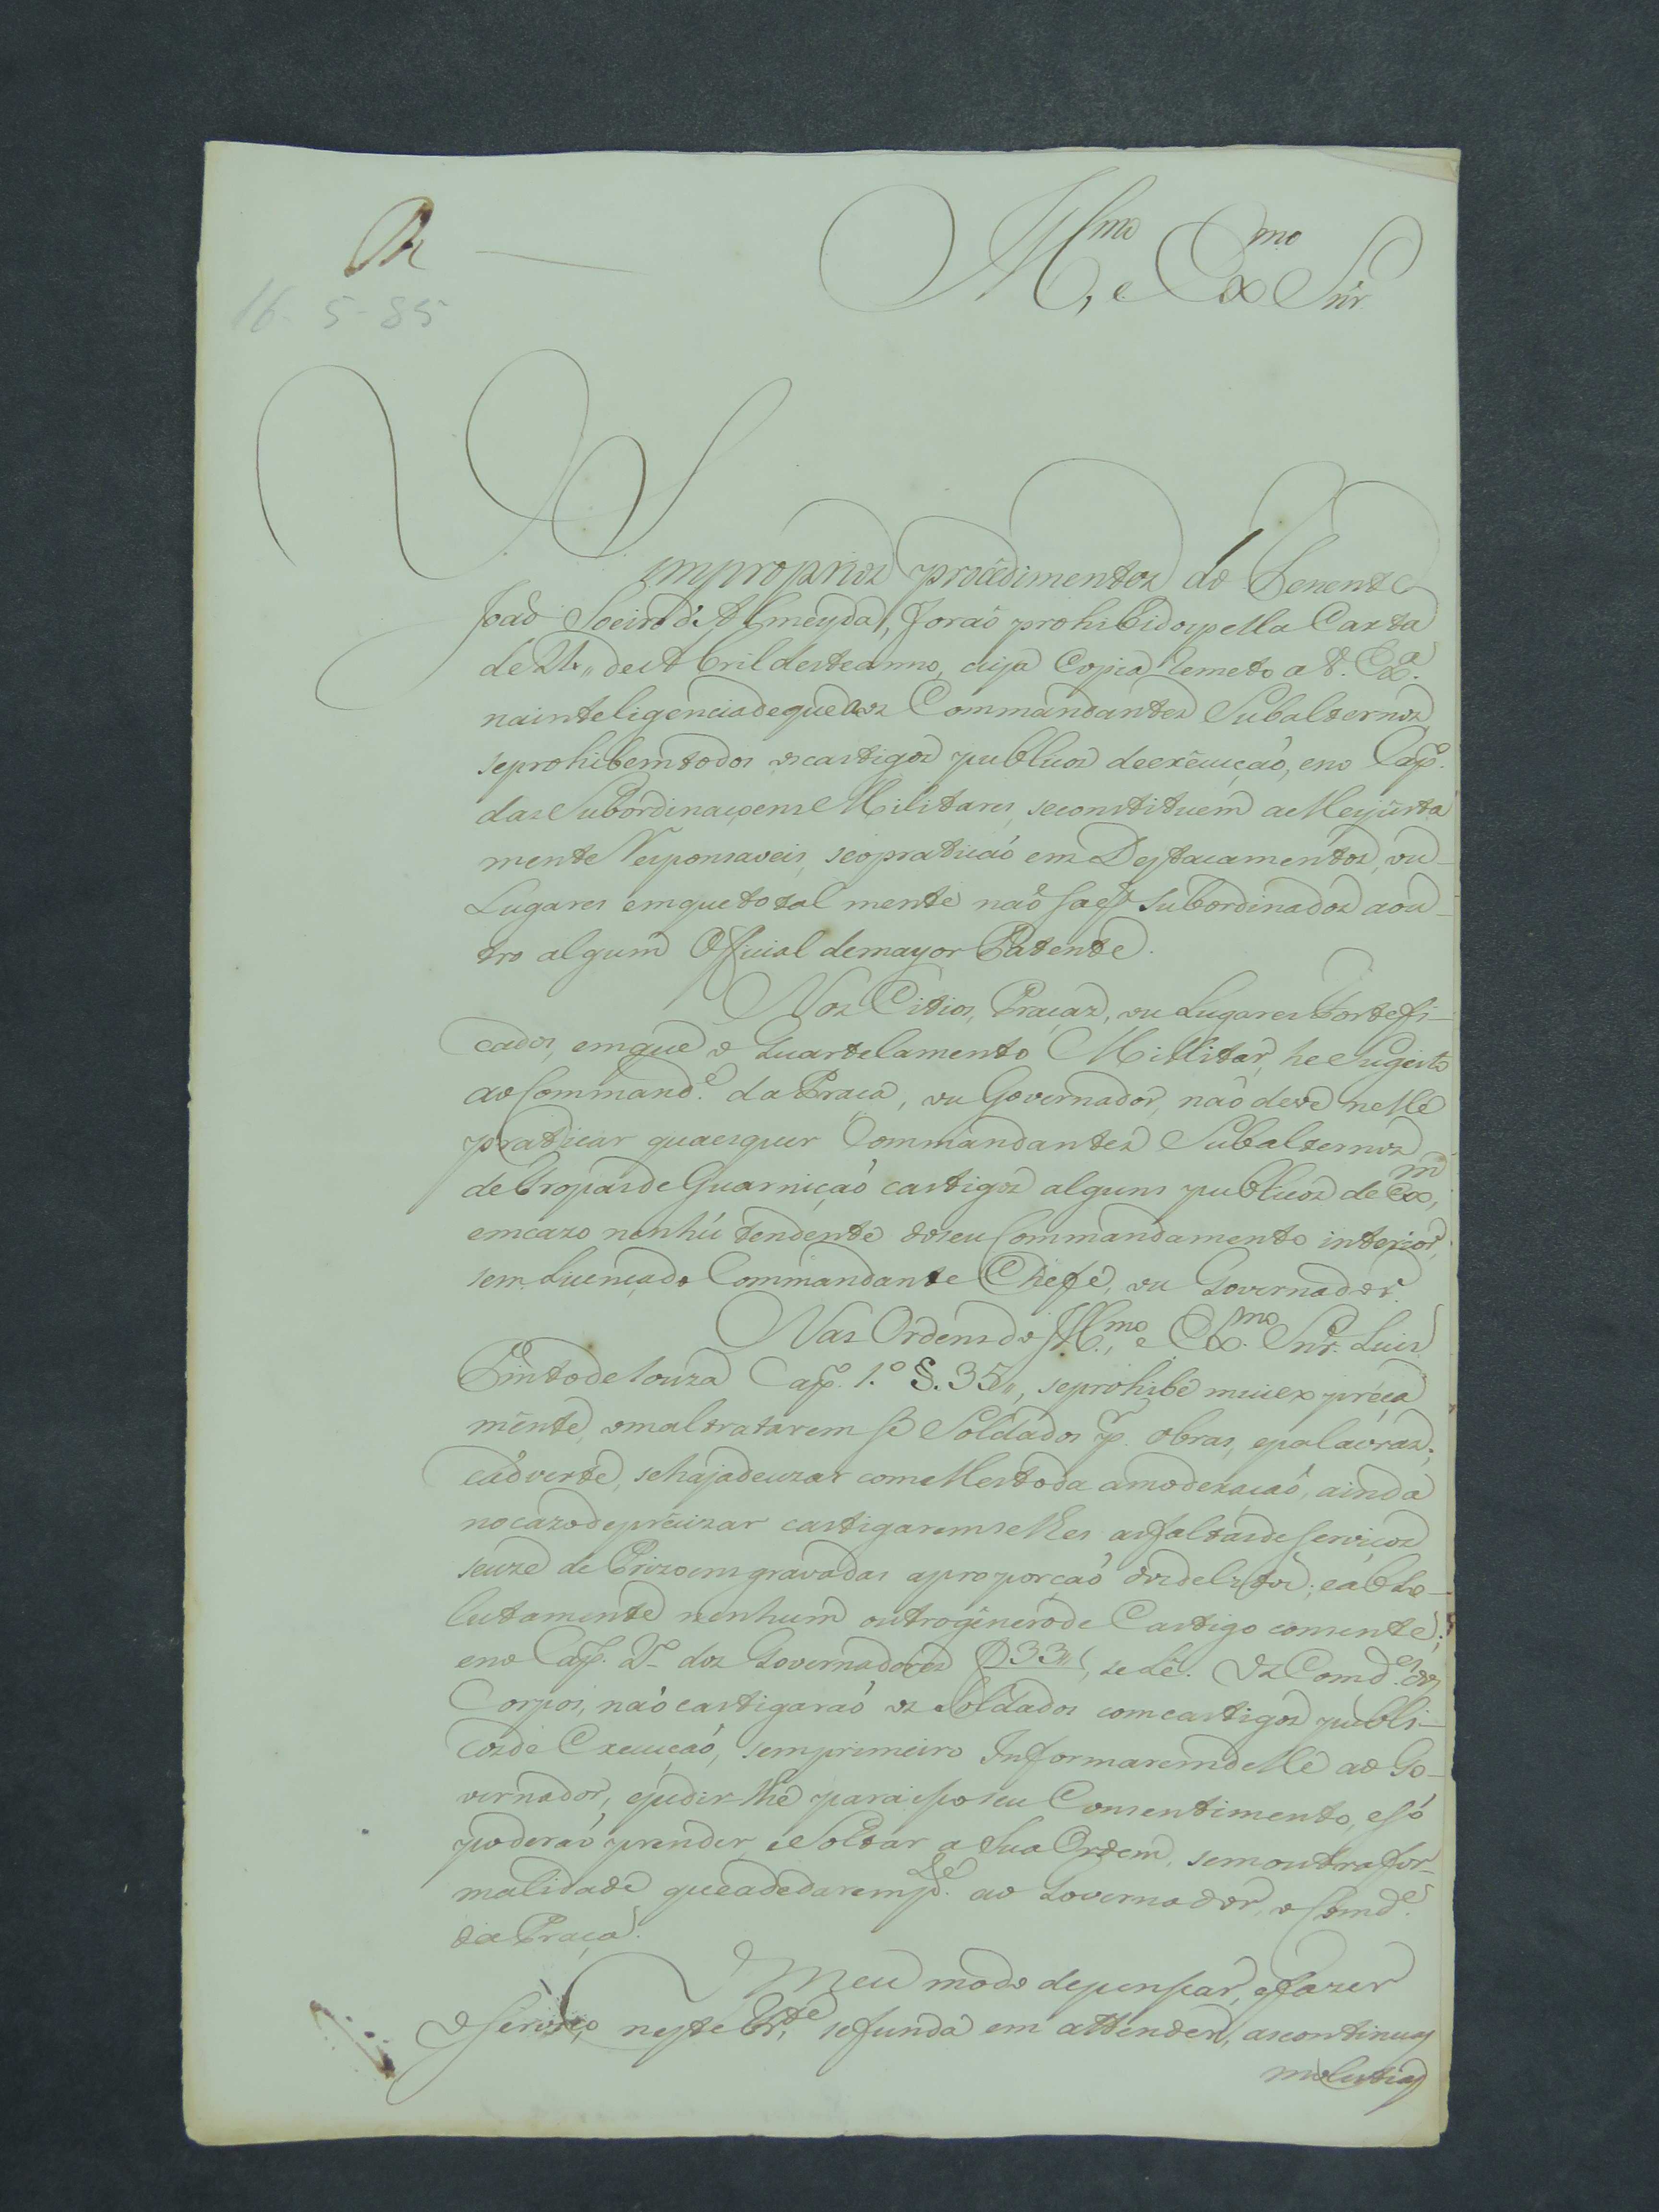 Ill.mo, e Ex.mo Snr
16-5-85
Improprios procedimentos do Tenente
João Soeiro d'Almeyda, forão prohibidos pella Carta
de 24,, de Abril deste anno, cuja Copia Remeto a V. Ex.a
na inteligencia de que aos Commandantes Subalternos
se prohibem todos os castigos publicos de execução, e no Cap.
das Subordinaçoens Militares, se constituem a elles justa
mente Responsaveis, se o praticão em Destacamentos, ou
Lugares em que total mente não são subordinados a ou-
tro algum Official de mayor Patente.
Nos Citios, Praças, ou Lugares Fortefi-
cados, em que o Quartelamento Millitar, he Sugeito
ao Command.e da Praça, ou Governador, não deve nelle
praticar quaesquer Commandantes Subalternos
de Tropas de Guarnição castigos alguns publicos de
em cazo nenhú tendente do seu Commandamento interior,
sem Licença do Commandante Chefe, ou Governador.
Nas Ordens do Ill.mo, e Ex.mo Snr. Luis
Pinto de Souza Cap. 1.º §. 35,, se prohibe mui expreça
mente, o maltratarem se Soldados p. obras, e palavras;
e adverte, se haja de uzar com elles toda a moderação, ainda
no cazo de precizar castigaremselhes as faltas de serviços
se uze de Prizoens gravadas a proporção dos delitos; e abso-
lutamente nenhum outro genero de Castigo consente;
e no Cap. 2.º dos Governadores § 33,, se Lê. Os Comd.es dos
Corpos, não castigarão os Soldados com castigos publi-
cos de Execução, sem primeiro Informarem delle ao Go-
vernador, e pedir-lhe para isso seu Consentimento, e só
poderão prender, e Soltar a Sua Ordem, sem outra for-
malidade que a de darem p.te ao Governador, o Comd.e
da Praça.
Meu modo de pensar, e fazer
o serviço neste se funda em attender, as continuas
molestias